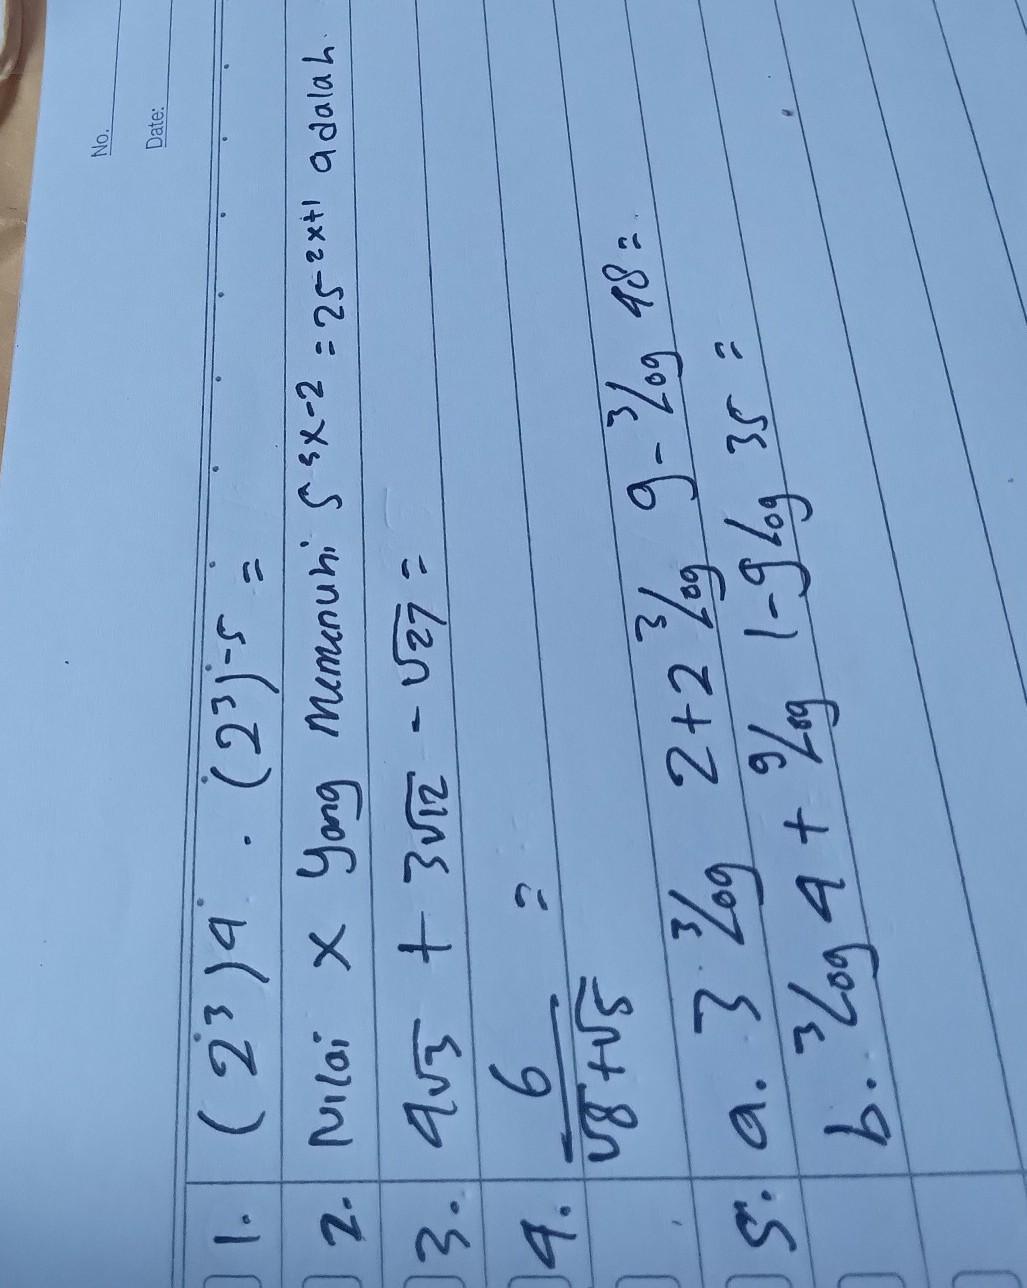 No.
Date:
1. (2³)4 . (2³)-5 =
2. Nilai x yang memenuhi 5³x-2 = 25²x+1 adalah.
3. 4√3 + 3√12 - √27 =
4. 6/(√8+√5) =
5. a. 3 ³log 2+2 ³log 9-³log 48 =
b. ³log 4 + ⁹log 1-9log 35 =